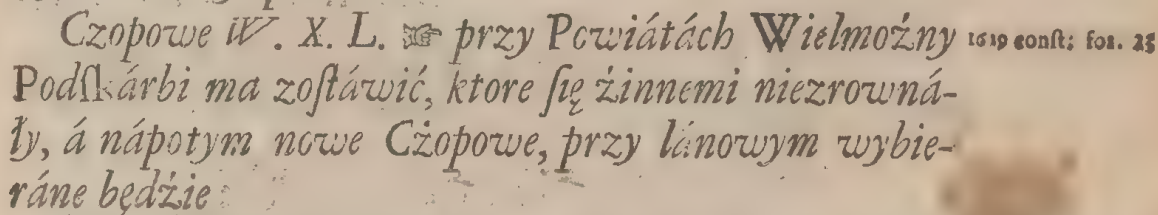 Czopowe W. X. L. ☞ przy Powiátách Wielmożny 1619 const: fol. 25
Podſkárbi ma zoſtáwić, ktore ſię żinnemi niezrowná-
ły, á nápotym nowe Cżopowe, przy lánowym wybie-
ráne będżie